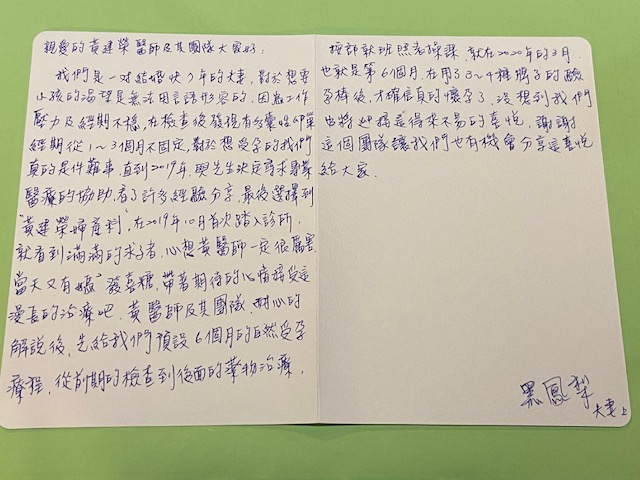 親愛的黃建榮醫師及其團隊大家好:
我們是一對結婚快7年的夫妻,對於想要
小孩的渴望是無法用言語形容的,因為工作
壓力及經期不穩,在檢查後發現有多囊性卵巢
經期從1~3個月不固定,對於想受孕的我們
真的是件難事,直到2019年,與先生決定尋求專業
醫療的協助,看了許多經驗分享,最後選擇到
"黃建榮婦產科",在2019年10月首次踏入診所,
就看到滿滿的求子者,心想黃醫師一定很厲害,
當天又有媽媽發喜糖,帶著期待的心情接受這
漫長的治療吧,黃醫師及其團隊,耐心的
解說後,先給我們預設6個月的自然受孕
療程,從前期的檢查到後面的藥物治療,
按部就班照表操課,就在2020年的3月
也就是第6個月,在用了3~4種牌子的驗
孕棒後,才確信真的懷孕了,沒想到我們
也將迎接這得來不易的喜悅,謝謝
這個團隊讓我們也有機會分享這喜悅
給大家.
黑鳳梨
夫妻上